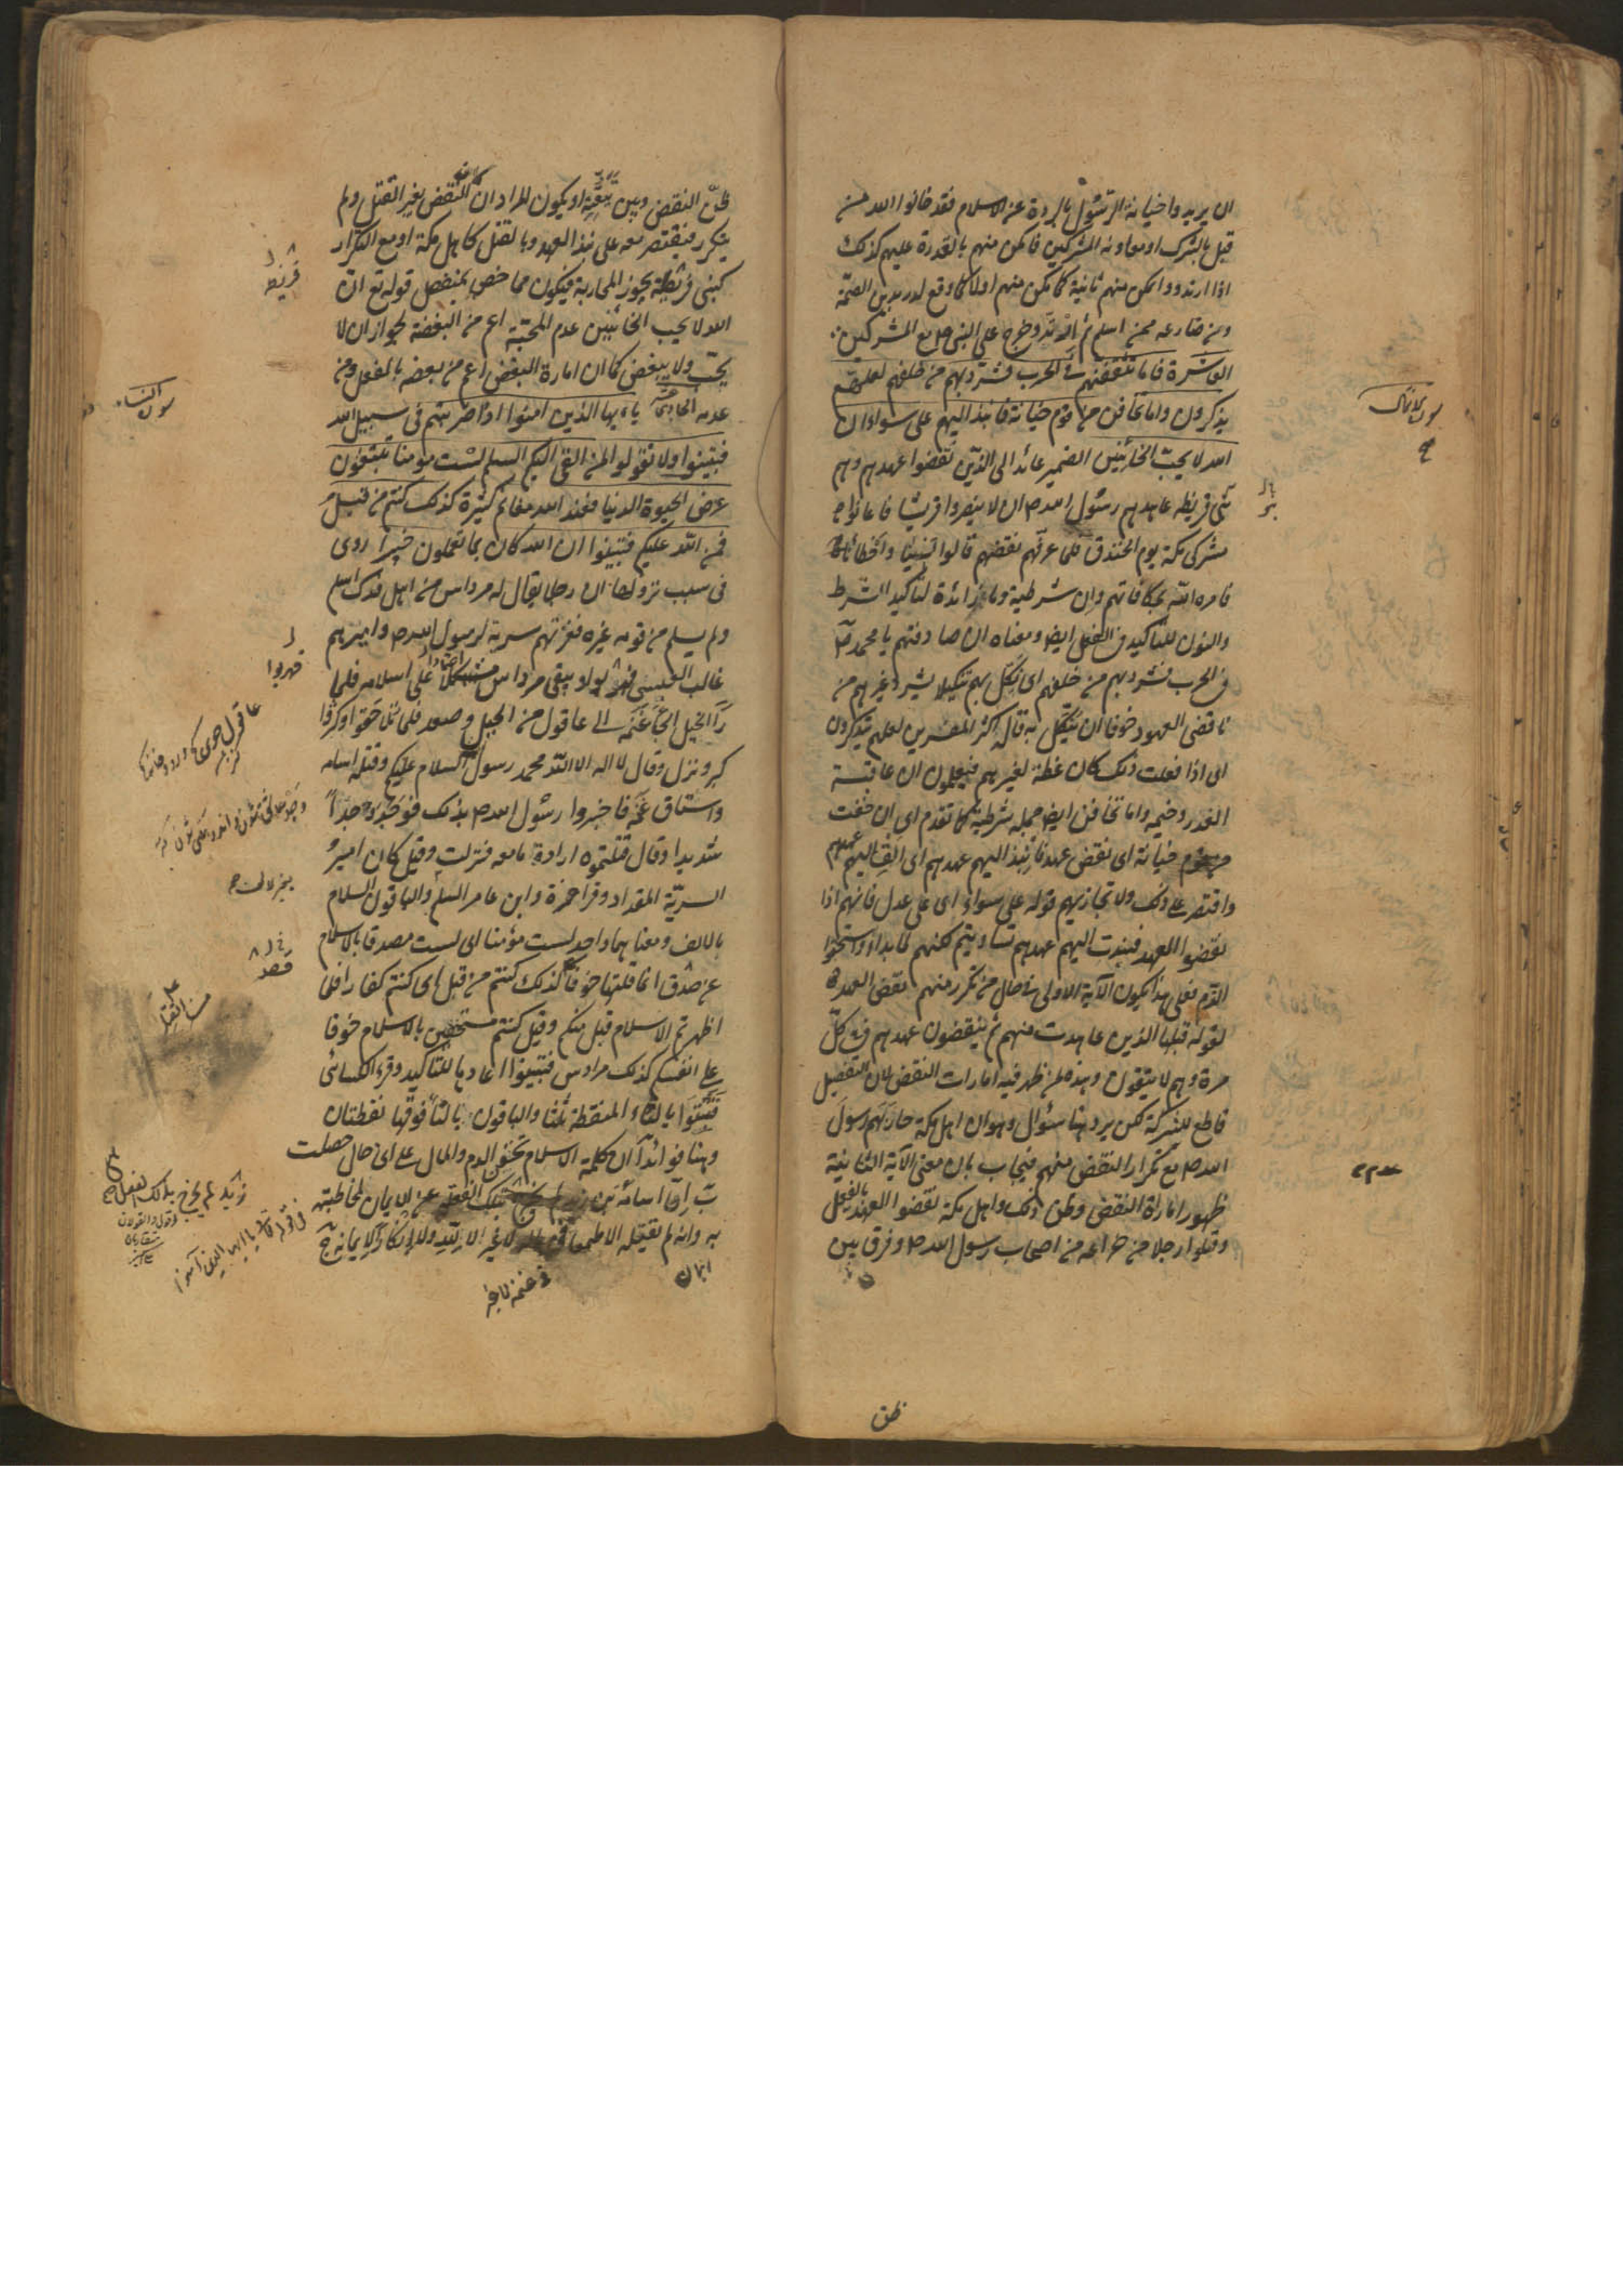 ان يريدوا خيانة الرسول بالردة عن الاسلام فقد خانوا الله من
قبل بالشرك او معاونة المشركين فامكن منهم بالقدرة عليهم كذلك
اذا ارتدوا امكن منهم ثانية كما مكن منهم اولا كما وقع لدريد بن الصمة
ومن ضارعه ممن اسلم ثم ارتد وخرج على النبي ص مع المشركين
العاشرة فاما تثقفنهم في الحرب فشرد بهم من خلفهم لعلهم
يذكرون واما تخافن من قوم خيانة فانبذ اليهم على سواء ان
الله لا يحب الخائنين الضمير عائد الى الذين نقضوا عهدهم وهم
بني قريظه عاهدهم رسول الله ص ان لا ينصروا قريشا فاعانوا
مشركي مكة يوم الخندق فلما عرفهم نقضهم قالوا نسينا واخطأنا
فامره الله بمكافاتهم وان شرطية وما زائدة لتاكيد الشرط
والنون للتاكيد في الفعل ايضا ومعناه ان صادفتهم يا محمد ص
في الحرب فشرد بهم من خلفهم اى نكل بهم تنكيلا يشرد غيرهم من
ناقضى العهود خوفا ان ينكل به قاله اكثر المفسرين لعلهم يتذكرون
اى اذا فعلت ذلك كان عظة لغيرهم فيعلمون ان عاقبة
الغدر وخيمه واما تخافن ايضا جملة شرطية كما تقدم اى ان خفت
من قوم خيانة اى نقض عهد فانبذ اليهم عهدهم اى الق اليهم عهدهم
واقتصر على ذلك ولا تجازيهم قوله على سواء اى على عدل فانهم اذا
نقضوا العهد فنبذت اليهم عهدهم تساويتم لكنهم لما بدأوا استحقوا
الذم فعلى هذا يكون الآية الاولى في حال من تكرر منهم نقض العهد
لقوله قبلها الذين عاهدت منهم ثم ينقضون عهدهم في كل
مرة وهم لا يتقون وهذه لمن ظهر فيه امارات النقض لان التفصيل
قاطع للشركة لكن يرد هنا سؤال وهو ان اهل مكة حاربهم رسول
الله ص مع تكرار النقض منهم فيجاب بان معنى الآية الثانية
ظهور امارة النقض وظن ذلك واهل مكة نقضوا العهد بالفعل
وقتلوا رجلا من خزاعه من اصحاب رسول الله ص وفرق بين
ظن
ظن النقض وبين او يكون المراد ان النقض بغير القتل ولم
يتكرر فيقتصر معه على نبذ العهد وبالقتل كاهل مكة او مع التكرار
كبنى قريظة يجوز المحاربة فيكون مما خص بمنفصل قوله تع ان
الله لا يحب الخائنين عدم المحبة اعم من البغضة لجواز ان لا
يحب ولا يبغض كما ان امارة البغض اعم من بغضه بالفعل ومن
عدمه الحادية عشر يا ايها الذين امنوا اذا ضربتم في سبيل الله
فتبينوا ولا تقولوا لمن القى اليكم السلم لست مؤمنا تبتغون
عرض الحيوة الدنيا فعند الله مغانم كثيرة كذلك كنتم من قبل
فمن الله عليكم فتبينوا ان الله كان بما تعملون خبيرا روى
في سبب نزولها ان رجلا يقال له مرداس من اهل فدك اسلم
ولم يسلم من قومه غيره فغزتهم سرية لرسول الله ص واميرهم
غالب الليثى وبقى مرداس على اسلامه فلما
رأ الخيل الجأ غنمه الى عاقول من الجبل وصعد فلما تلاحقوا وكبروا
كبر ونزل وقال لا اله الا الله محمد رسول الله السلام عليكم وقتله اسامه
واستاق غنمه فاخبروا رسول الله ص بذلك فوجد وجدا
شديدا وقال قتلتموه ارادة ما معه فنزلت وقيل كان امير
السرية المقداد وقرأ حمزة وابن عامر السلم والباقون السلام
بالالف ومعناهما واحد لست مؤمنا اى لست مصدقا بالاسلام
عن صدق انما قلتها خوفا كذلك كنتم من قبل اى كنتم كفارا فلما
اظهرتم الاسلام قبل منكم وقيل كنتم مستخفين بالاسلام خوفا
على انفسكم كذلك مرداس فتبينوا اعادها للتأكيد وقرء الكسائى
فتثبتوا بالثاء المنقطة ثلثا والباقون بالتاء فوقها نقطتان
وهنا فوائد آ ان كلمة الاسلام تحقن الدم والمال على اى حال حصلت
ب ان اسامة بن زيد لم يخرج بذلك الفعل عن الايمان لمخاطبته
به وانه لم يقتله الا طمعا لا غير
قريظه
سورة النساء
سورة الانفال